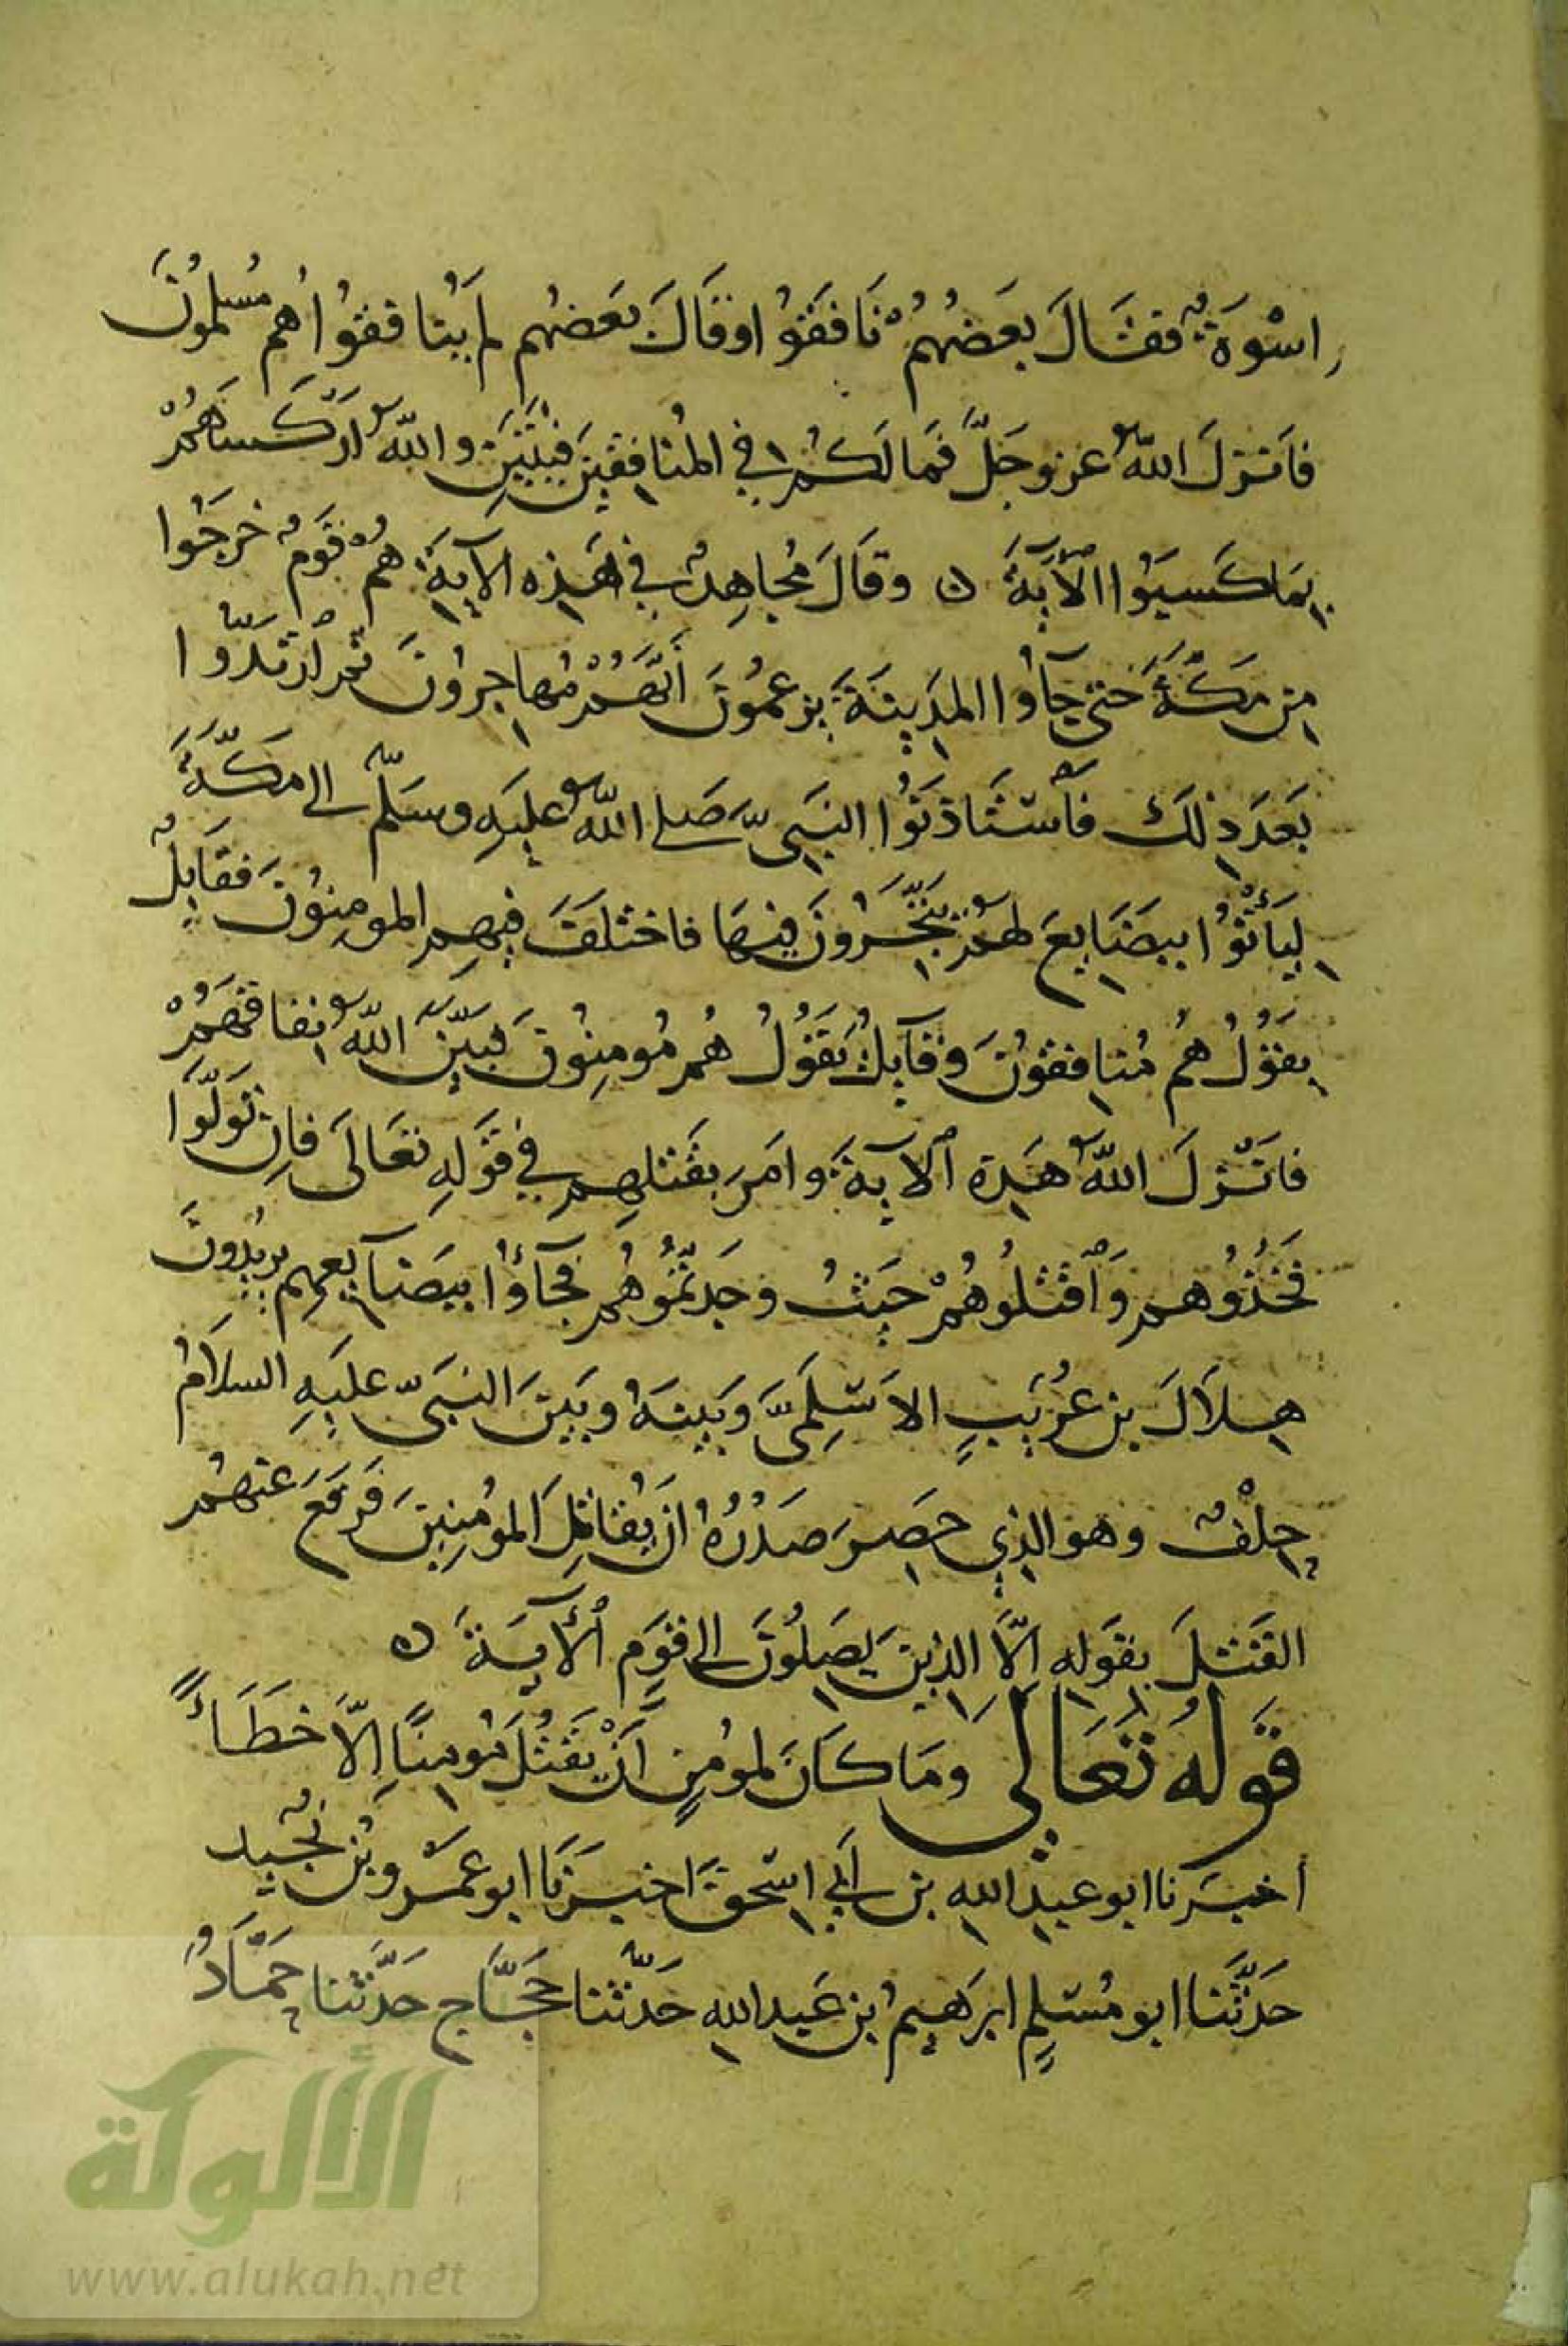 اسْوَةٌ فقَالَ بعَضُهُمْ نَافَقوُا وقَالَ بَعَضهُم لم يُنافقوُا هُم مُسْلموُنَ
فاَنزلَ اللهُ عز وجَلَّ فَمالَكُمْ في المُنافِقِينَ فِئَتَيَنِ واللهُ ارَكَسَهُمْ
بِمَا كَسَبوُا الآيَةَ ه وقاَلَ مُجاهِدٌ في هَذِه الآيِةَ هُمْ قَومٌ خرجَوُا
مِن مَكَّةَ حَتى جآوُا المدِينَةَ يزعمُونَ أنَّهُمْ مُهاجِروُنَ ثم ارْتدّوُا
بَعَدَ ذِلكَ فاسْتَاذنَوُا النبَيَّ صَلى اللهُ عليَهِ وسَلّم الى مَكَّةَ
لِيَأتْوُا ببضَايِعَ لهُمْ يتَّجِرُونَ فيهَا فاختْلَفَ فيهِم المومِنوُنَ فقَايِلٌ
يقَوُلُ هُم مُنافِقوُنَ وقَآيلٌ يَقَوُلُ هُم مُومِنوُنَ فبَيّنَ اللهُ نِفاقهَمُْ
فانَزلَ اللهُ هَذِهِ الآيةَ وامَرَ بقَتلهِم في قَولهِ تعَالَى فاِن تَوَلّوَا
فَخذُوُهم وَاقْتلُوهُمْ حَيثُ وَجَدتّمُوُهُم فجآؤُا ببضَآيعِهِم يريُدونَ
هِلاَلَ بن عُوَيِمِرٍ الاسَلِميَّ وَبَينَهُ وبَينَ النبَيّ عليَهِ السلاَمُ
حِلفٌ وهو الذِي حَصِرَ صَدْرُهُ انَ يُقاتِلَ المُومِنيِنَ فَرفَعَ عنهُم
القَتلَ بقوَلهِ اِلّا الذِينَ يصِلُونَ الى قَومٍ الآيَةَ ه
قَولهُ تَعَالى ومَا كاَنَ لمومُنٍ أَنْ يقَتُلَ مُومِناً اِلاّ خطَأً
أخبَرنا ابو عبدِ اللهِ بن أبي اِسحقَ اخبَرنَا ابو عَمْرو بُن نُجَيد
حَدّثَنا ابو مُسَلمٍ ابرَهيمُ بن عَبد اللهِ حَدّثنا حَجَّاج حَدثنا حَمَّادُ
الألوكة
www.alukah.net